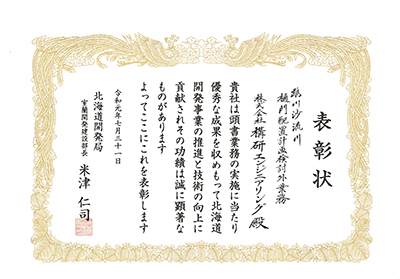 表彰状
鵡川沙流川
樋門配置計画検討外業務
株式会社 構研エンジニアリング 殿
貴社は頭書業務の実施に当たり
優秀な成果を収めもって北海道
開発事業の推進と技術の向上に
貢献されその功績は誠に顕著な
ものがあります
よってここにこれを表彰します
令和元年七月三十一日
北海道開発局
室蘭開発建設部長 米津 仁司